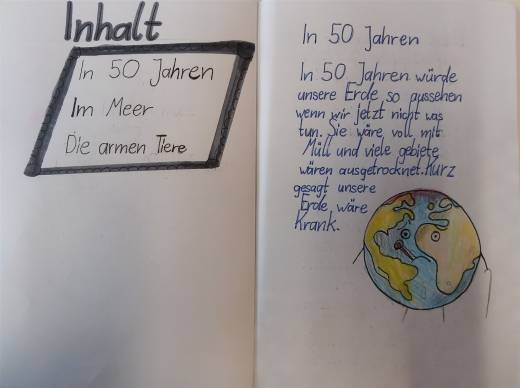 Inhalt
In 50 Jahren
Im Meer
Die armen Tiere
In 50 Jahren
In 50 Jahren würde
unsere Erde so aussehen
wenn wir Jetzt nicht was
tun. Sie wäre voll mit
Müll und viele gebiete
wären ausgetrocknet. Kurz
gesagt unsere
Erde wäre
Krank.